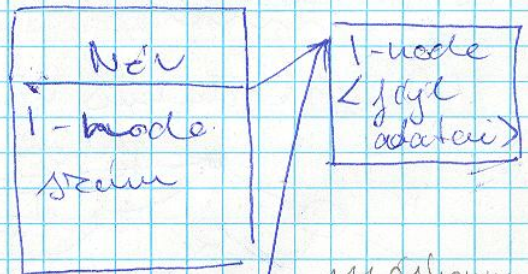 Név
I-node
szám
I-node
<fájl
adatai>